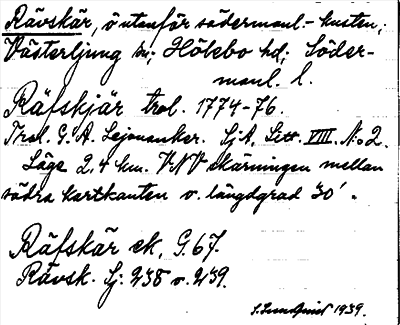 Rävskär, ö utanför södermanl.-kusten,
Västerljung sn; Hölebo hd; Söder-
manl. l.
Räfskjär trol. 1774-76.
Trol. G. A. Lejonanker. SjA, Sett. VIII. No 2.
Läge 2,4 km. VNV skärningen mellan
södra kartkanten o. längdgrad 30'.
Räfskär ek, G. 67.
Rävsk. Sj: 238 o. 239.
S. Lundquist 1939.